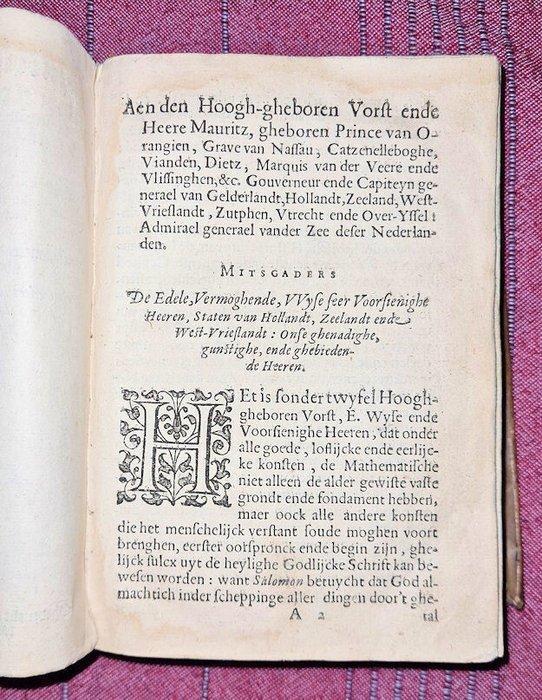 Aen den Hoogh-gheboren Vorſt ende
Heere Mauritz, gheboren Prince van O-
rangien, Grave van Naſſau, Catzenelleboghe,
Vianden, Dietz, Marquis van der Veere ende
Vliſſinghen,&c. Gouverneur ende Capiteyn ge-
nerael van Gelderlandt,Hollandt,Zeeland,Weſt-
Vrieſlandt, Zutphen, Vtrecht ende Over-Yſſel:
Admirael generael vander Zee deſer Nederlan-
den.
MITSGADERS
De Edele,Vermoghende, VVyſe ſeer Voorſienighe
Heeren, Staten van Hollandt, Zeelandt ende
Weſt-Vrieſlandt: Onſe ghenadighe,
gunſtighe, ende ghebieden-
de Heeren.
HEt is ſonder twyfel Hoogh-
gheboren Vorſt, E. Wyſe ende
Voorſienighe Heeren, dat onder
alle goede, loflijcke ende eerlijc-
ke konſten, de Mathematiſche
niet alleen de alder gewiſte vaſte
grondt ende fondament hebben,
maer oock alle andere konſten
die het menſchelijck verſtant ſoude moghen voort
brenghen, eerſter ootſpronck ende begin zijn, ghe-
lijck ſulcx uyt de heylighe Godlijcke Schrift kan be-
weſen worden: want Salomon betuycht dat God al-
machtich inder ſcheppinge aller dingen door't ghe-
A 2 tal